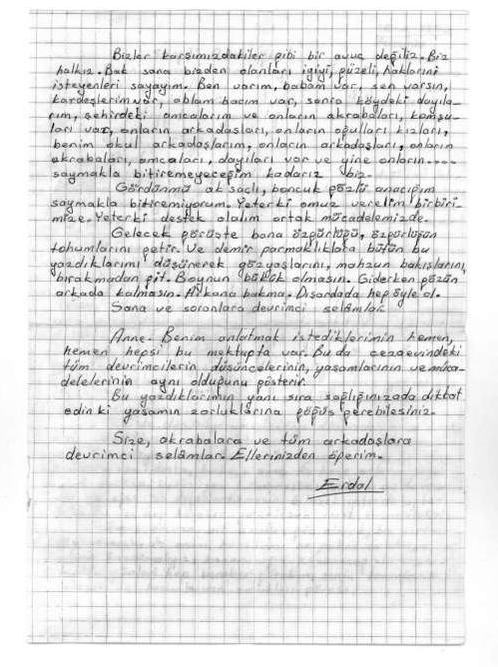 Bizler karşımızdakiler gibi bir avuç değiliz. Biz
halkız. Bak sana bizden olanları iyiyi, güzeli, haklarını
isteyenleri sayayım. Ben varım, babam var, sen varsın,
kardeşlerim var, ablam bacım var, sonra köydeki dayıla-
rım, şehirdeki amcalarım ve onların akrabaları, komşu-
ları var, onların arkadaşları, onların oğulları kızları,
benim okul arkadaşlarım, onların arkadaşları, onların
akrabaları, amcaları, dayıları var ve yine onların.....
saymakla bitiremeyeceğim kadarız biz.
Gördünmü ak saçlı, boncuk gözlü anacığım
saymakla bitiremiyorum. Yeterki omuz verelim birbiri-
mize. Yeterki destek olalım ortak mücadelemizde.
Gelecek görüşte bana özgürlüğü, özgürlüğün
tohumlarını getir. Ve demir parmaklıklara bütün bu
yazdıklarımı düşünerek gözyaşlarını, mahzun bakışlarını
bırakmadan git. Boynun bükük olmasın. Giderken gözün
arkada kalmasın. Arkana bakma. Dışarıda hep öyle ol.
Sana ve soranlara devrimci selâmlar.
Anne. Benim anlatmak istediklerimin hemen,
hemen hepsi bu mektupta var. Bu da cezaevindeki
tüm devrimcilerin düşüncelerinin, yaşamlarının ve müca-
delelerinin aynı olduğunu gösterir.
Bu yazdıklarımın yanı sıra sağlığınızada dikkat
edin ki yaşamın zorluklarına göğüs gerebilesiniz.
Size, akrabalara ve tüm arkadaşlara
devrimci selâmlar. Ellerinizden öperim.
Erdal